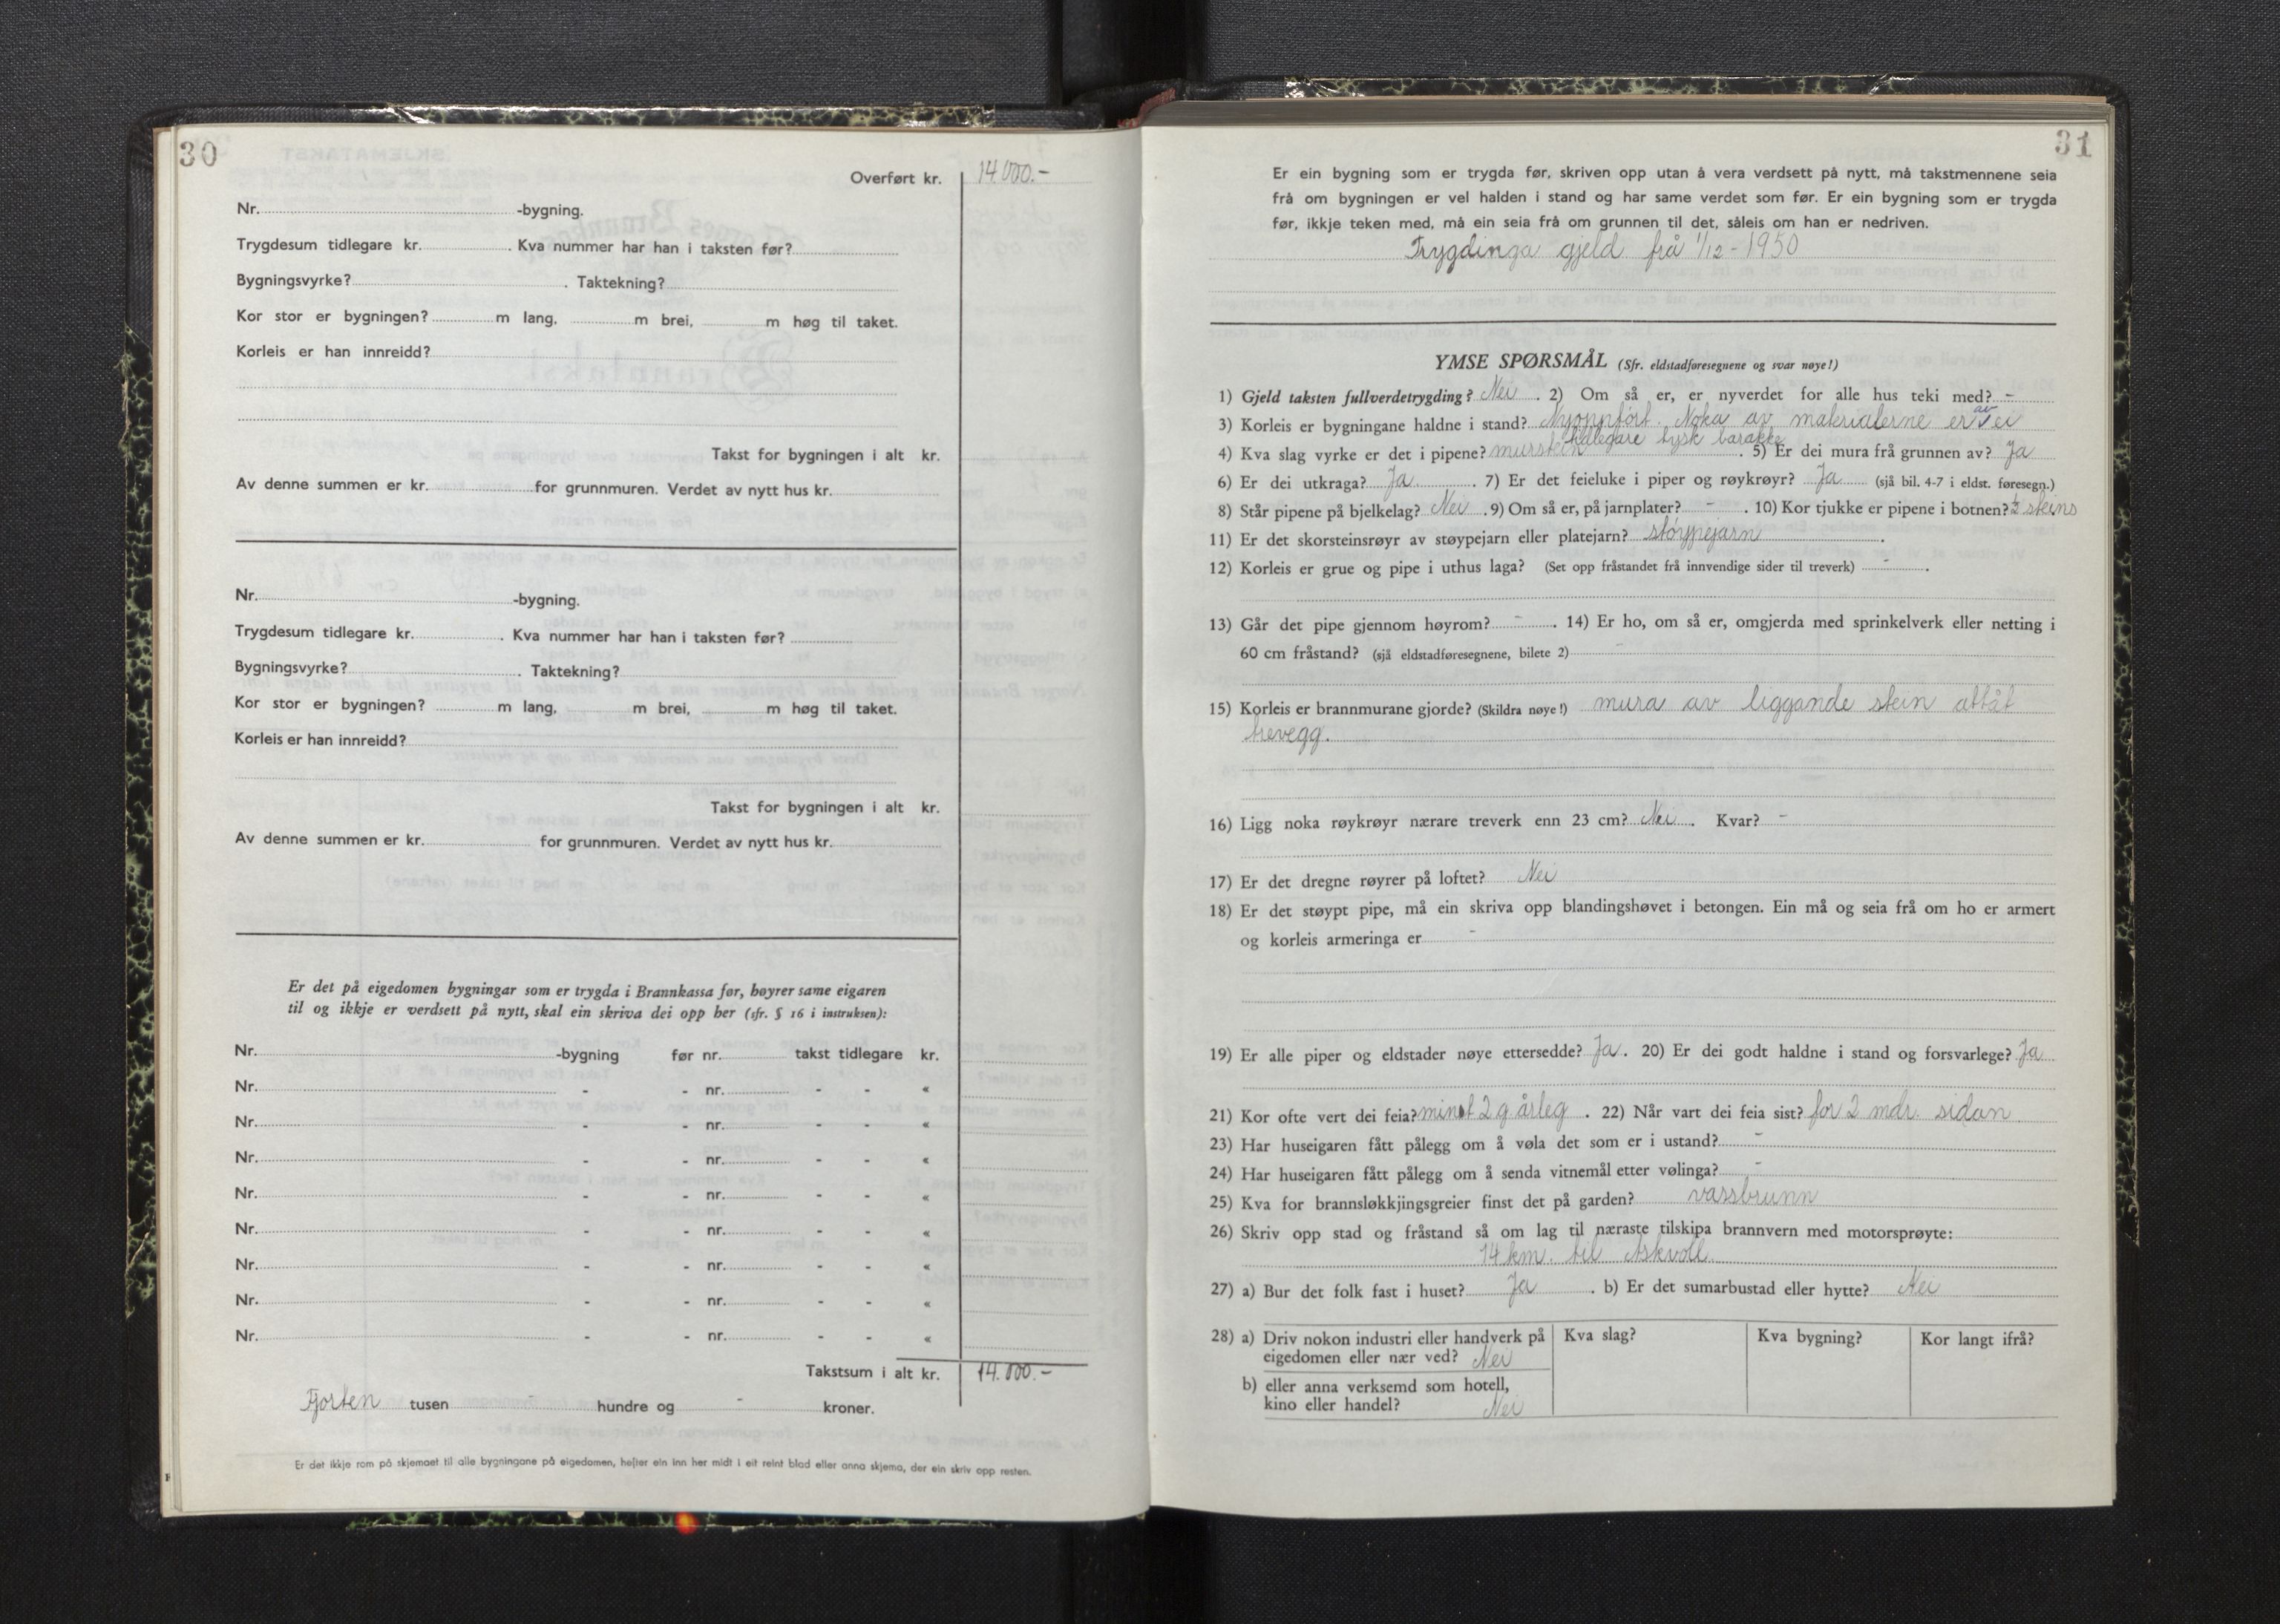 30
Overført kr. 14.000.-
Nr. -bygning.
Trygdesum tidlegare kr. . Kva nummer har han i taksten før?
Bygningsvyrke? . Taktekning?
Kor stor er bygningen? m lang, m brei, m høg til taket.
Korleis er han innreidd?
Takst for bygningen i alt kr.
Av denne summen er kr. for grunnmuren. Verdet av nytt hus kr.
Nr. -bygning.
Trygdesum tidlegare kr. . Kva nummer har han i taksten før?
Bygningsvyrke? . Taktekning?
Kor stor er bygningen? m lang, m brei, m høg til taket.
Korleis er han innreidd?
Takst for bygningen i alt kr.
Av denne summen er kr. for grunnmuren. Verdet av nytt hus kr.
Er det på eigedomen bygningar som er trygda i Brannkassa før, høyrer same eigaren
til og ikkje er verdsett på nytt, skal ein skriva dei opp her (sfr. § 16 i instruksen):
Nr. -bygning før nr. takst tidlegare kr.
Nr. - - nr. - - «
Nr. - - nr. - - «
Nr. - - nr. - - «
Nr. - - nr. - - «
Nr. - - nr. - - «
Nr. - - nr. - - «
Nr. - - nr. - - «
Nr. - - nr. - - «
Takstsum i alt kr. 14.000.-
Fjorten tusen - hundre og - kroner.
Er det ikkje rom på skjemaet til alle bygningane på eigedomen, hefter ein inn her midt i eit reint blad eller anna skjema, der ein skriv opp resten.
31
Er ein bygning som er trygda før, skriven opp utan å vera verdsett på nytt, må takstmennene seia
frå om bygningen er vel halden i stand og har same verdet som før. Er ein bygning som er trygda
før, ikkje teken med, må ein seia frå om grunnen til det, såleis om han er nedriven.
Trygdinga gjeld frå 1/12 - 1950
YMSE SPØRSMÅL (Sfr. eldstadføresegnene og svar nøye!)
1) Gjeld taksten fullverdetrygding? Nei . 2) Om så er, er nyverdet for alle hus teki med? -
3) Korleis er bygningane haldne i stand? Nyoppført. Noka av materialerne er av ei
tidlegare tysk barakke
4) Kva slag vyrke er det i pipene? murstein . 5) Er dei mura frå grunnen av? Ja
6) Er dei utkraga? Ja . 7) Er det feieluke i piper og røykrøyr? Ja (sjå bil. 4-7 i eldst. føresegn.)
8) Står pipene på bjelkelag? Nei . 9) Om så er, på jarnplater? - . 10) Kor tjukke er pipene i botnen? ½ steins
11) Er det skorsteinsrøyr av støypejarn eller platejarn? støypejarn .
12) Korleis er grue og pipe i uthus laga? (Set opp fråstandet frå innvendige sider til treverk) - .
13) Går det pipe gjennom høyrom? - . 14) Er ho, om så er, omgjerda med sprinkelverk eller netting i
60 cm fråstand? (sjå eldstadføresegnene, bilete 2) -
15) Korleis er brannmurane gjorde? (Skildra nøye!) mura av liggande stein attåt
trevegg.
16) Ligg noka røykrøyr nærare treverk enn 23 cm? Nei . Kvar? -
17) Er det dregne røyrer på loftet? Nei
18) Er det støypt pipe, må ein skriva opp blandingshøvet i betongen. Ein må og seia frå om ho er armert
og korleis armeringa er -
19) Er alle piper og eldstader nøye ettersedde? Ja . 20) Er dei godt haldne i stand og forsvarlege? Ja
21) Kor ofte vert dei feia? minst 2 g årleg . 22) Når vart dei feia sist? for 2 mdr. sidan
23) Har huseigaren fått pålegg om å vøla det som er i ustand? -
24) Har huseigaren fått pålegg om å senda vitnemål etter vølinga? -
25) Kva for brannsløkkjingsgreier finst det på garden? vassbrunn
26) Skriv opp stad og fråstand så om lag til næraste tilskipa brannvern med motorsprøyte:
14 km. til Askvoll
27) a) Bur det folk fast i huset? Ja . b) Er det sumarbustad eller hytte? Nei
28) a) Driv nokon industri eller handverk på eigedomen eller nær ved? Nei Kva slag? Kva bygning? Kor langt ifrå?
b) eller anna verksemd som hotell,
kino eller handel? Nei